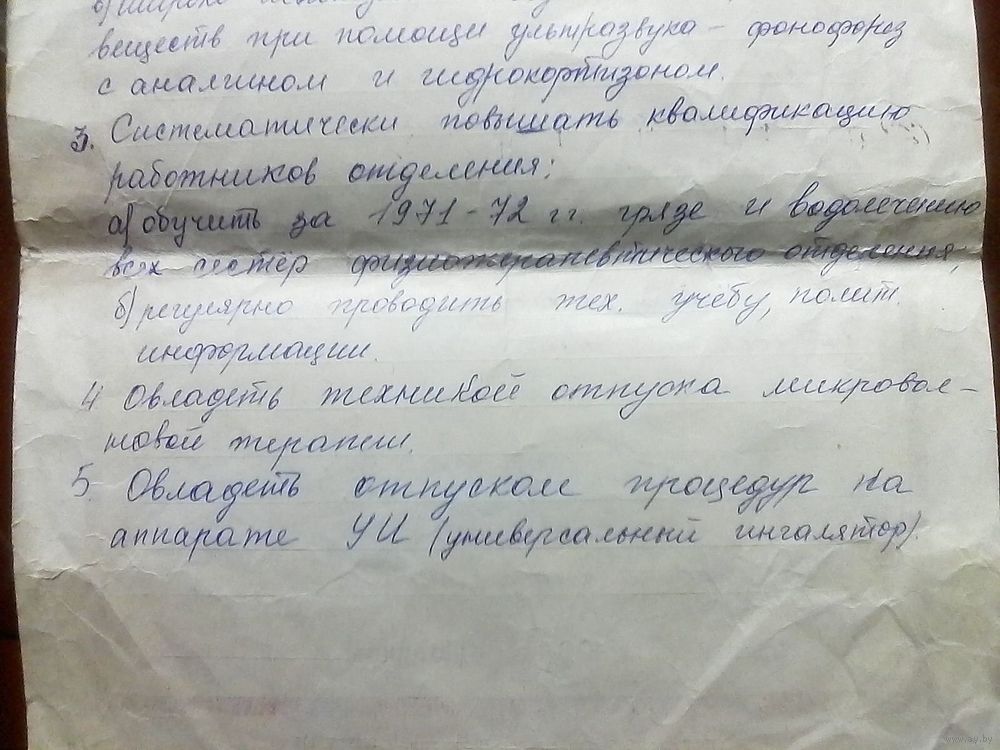 в) широко
веществ при помощи ультразвука – фонофорез
с аналгином и гидрокортизоном.
3. Систематически повышать квалификацию
работников отделения:
а) обучить за 1971-72 гг. грязе и водолечению
всех сестёр физиотерапевтического отделения;
б) регулярно проводить тех. учёбу, полит.
информации.
4 Овладеть техникой отпуска микровол-
новой терапии.
5. Овладеть отпуском процедур на
аппарате УИ (универсальный ингалятор).
www.ay.by